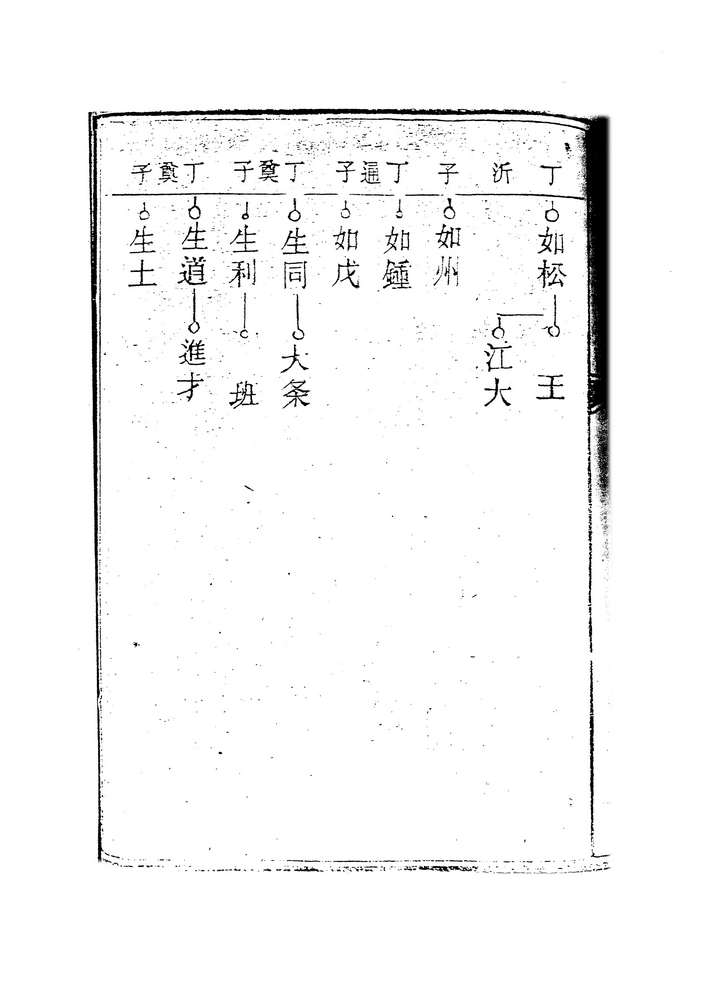 丁沂子
丁通子
丁奠子
丁奠子
如松
王
江大
如州
如鍾
如戊
生同
大条
生利
班
生道
進才
生土